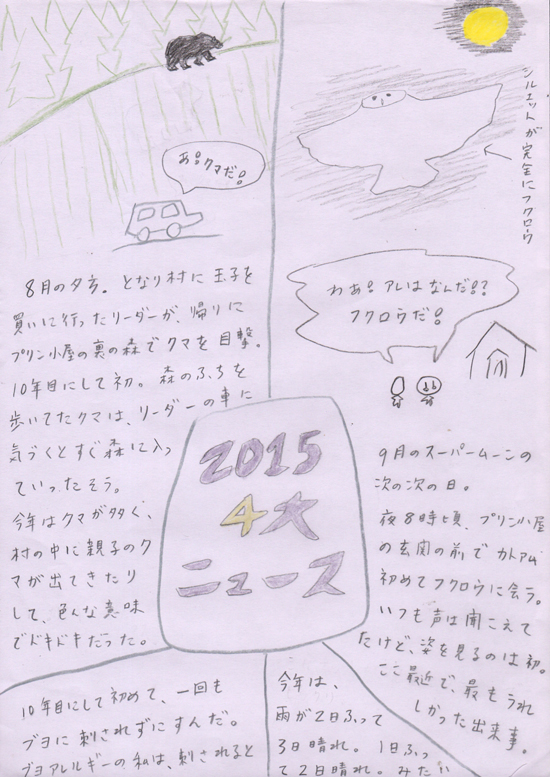 あ!クマだ!
8月の夕方。となり村に玉子を
買いに行ったリーダーが、帰りに
プリン小屋の裏の森でクマを目撃。
10年目にして初。森のふちを
歩いてたクマは、リーダーの車に
気づくとすぐ森に入っ
ていったそう。
今年はクマが多く、
村の中に親子のク
マが出てきたり
して、色んな意味
でドキドキだった。
シルエットが完全にフクロウ
わあ!アレはなんだ!?
フクロウだ!
9月のスーパームーンの
次の次の日。
夜8時頃、プリン小屋
の玄関の前でカトアム
初めてフクロウに会う。
いつも声は聞こえて
たけど、姿を見るのは初。
ここ最近で、最もうれ
しかった出来事。
2015
4大
ニュース
10年目にして初めて、一回も
ブヨに刺されずにすんだ。
ブヨアレルギーの私は、刺されると
今年は、
雨が2日ふって
3日晴れ。1日ふっ
て2日晴れ。みたい